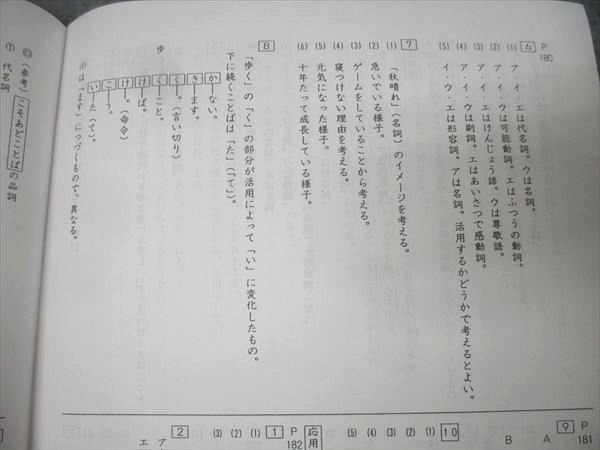 P
180
6
(1) ア・イ・エは代名詞。ウは名詞。
(2) ア・イ・ウは可能動詞。エはふつうの動詞。
(3) ア・イ・エはけんじょう語。ウは尊敬語。
(4) ア・イ・ウは副詞。エはあいさつで感動詞。
(5) イ・ウ・エは形容詞。アは名詞。活用するかどうかで考えるとよい。
7
(1) 「秋晴れ」(名詞)のイメージを考える。
(2) 急いでいる様子。
(3) ゲームをしていることから考える。
(4) 寝つけない理由を考える。
(5) 元気になった様子。
(6) 十年たって成長している様子。
8
「歩く」の「く」の部分が活用によって「い」に変化したもの。
下に続くことばは「た」(「て」)。
歩
か―ない。
き―ます。
く。(言い切り)
く―こと。
け―ば。
け。(命令)
こ―う。
い―た(て)。
は「ます」につづくもので、異なる。
◎(参考)こそあどことばの品詞
① 代名詞
P
181
9
A
B
10
(1)
(2)
(3)
(4)
(5)
応用
P
182
1
(1)
(2)
(3)
2
ア
エ